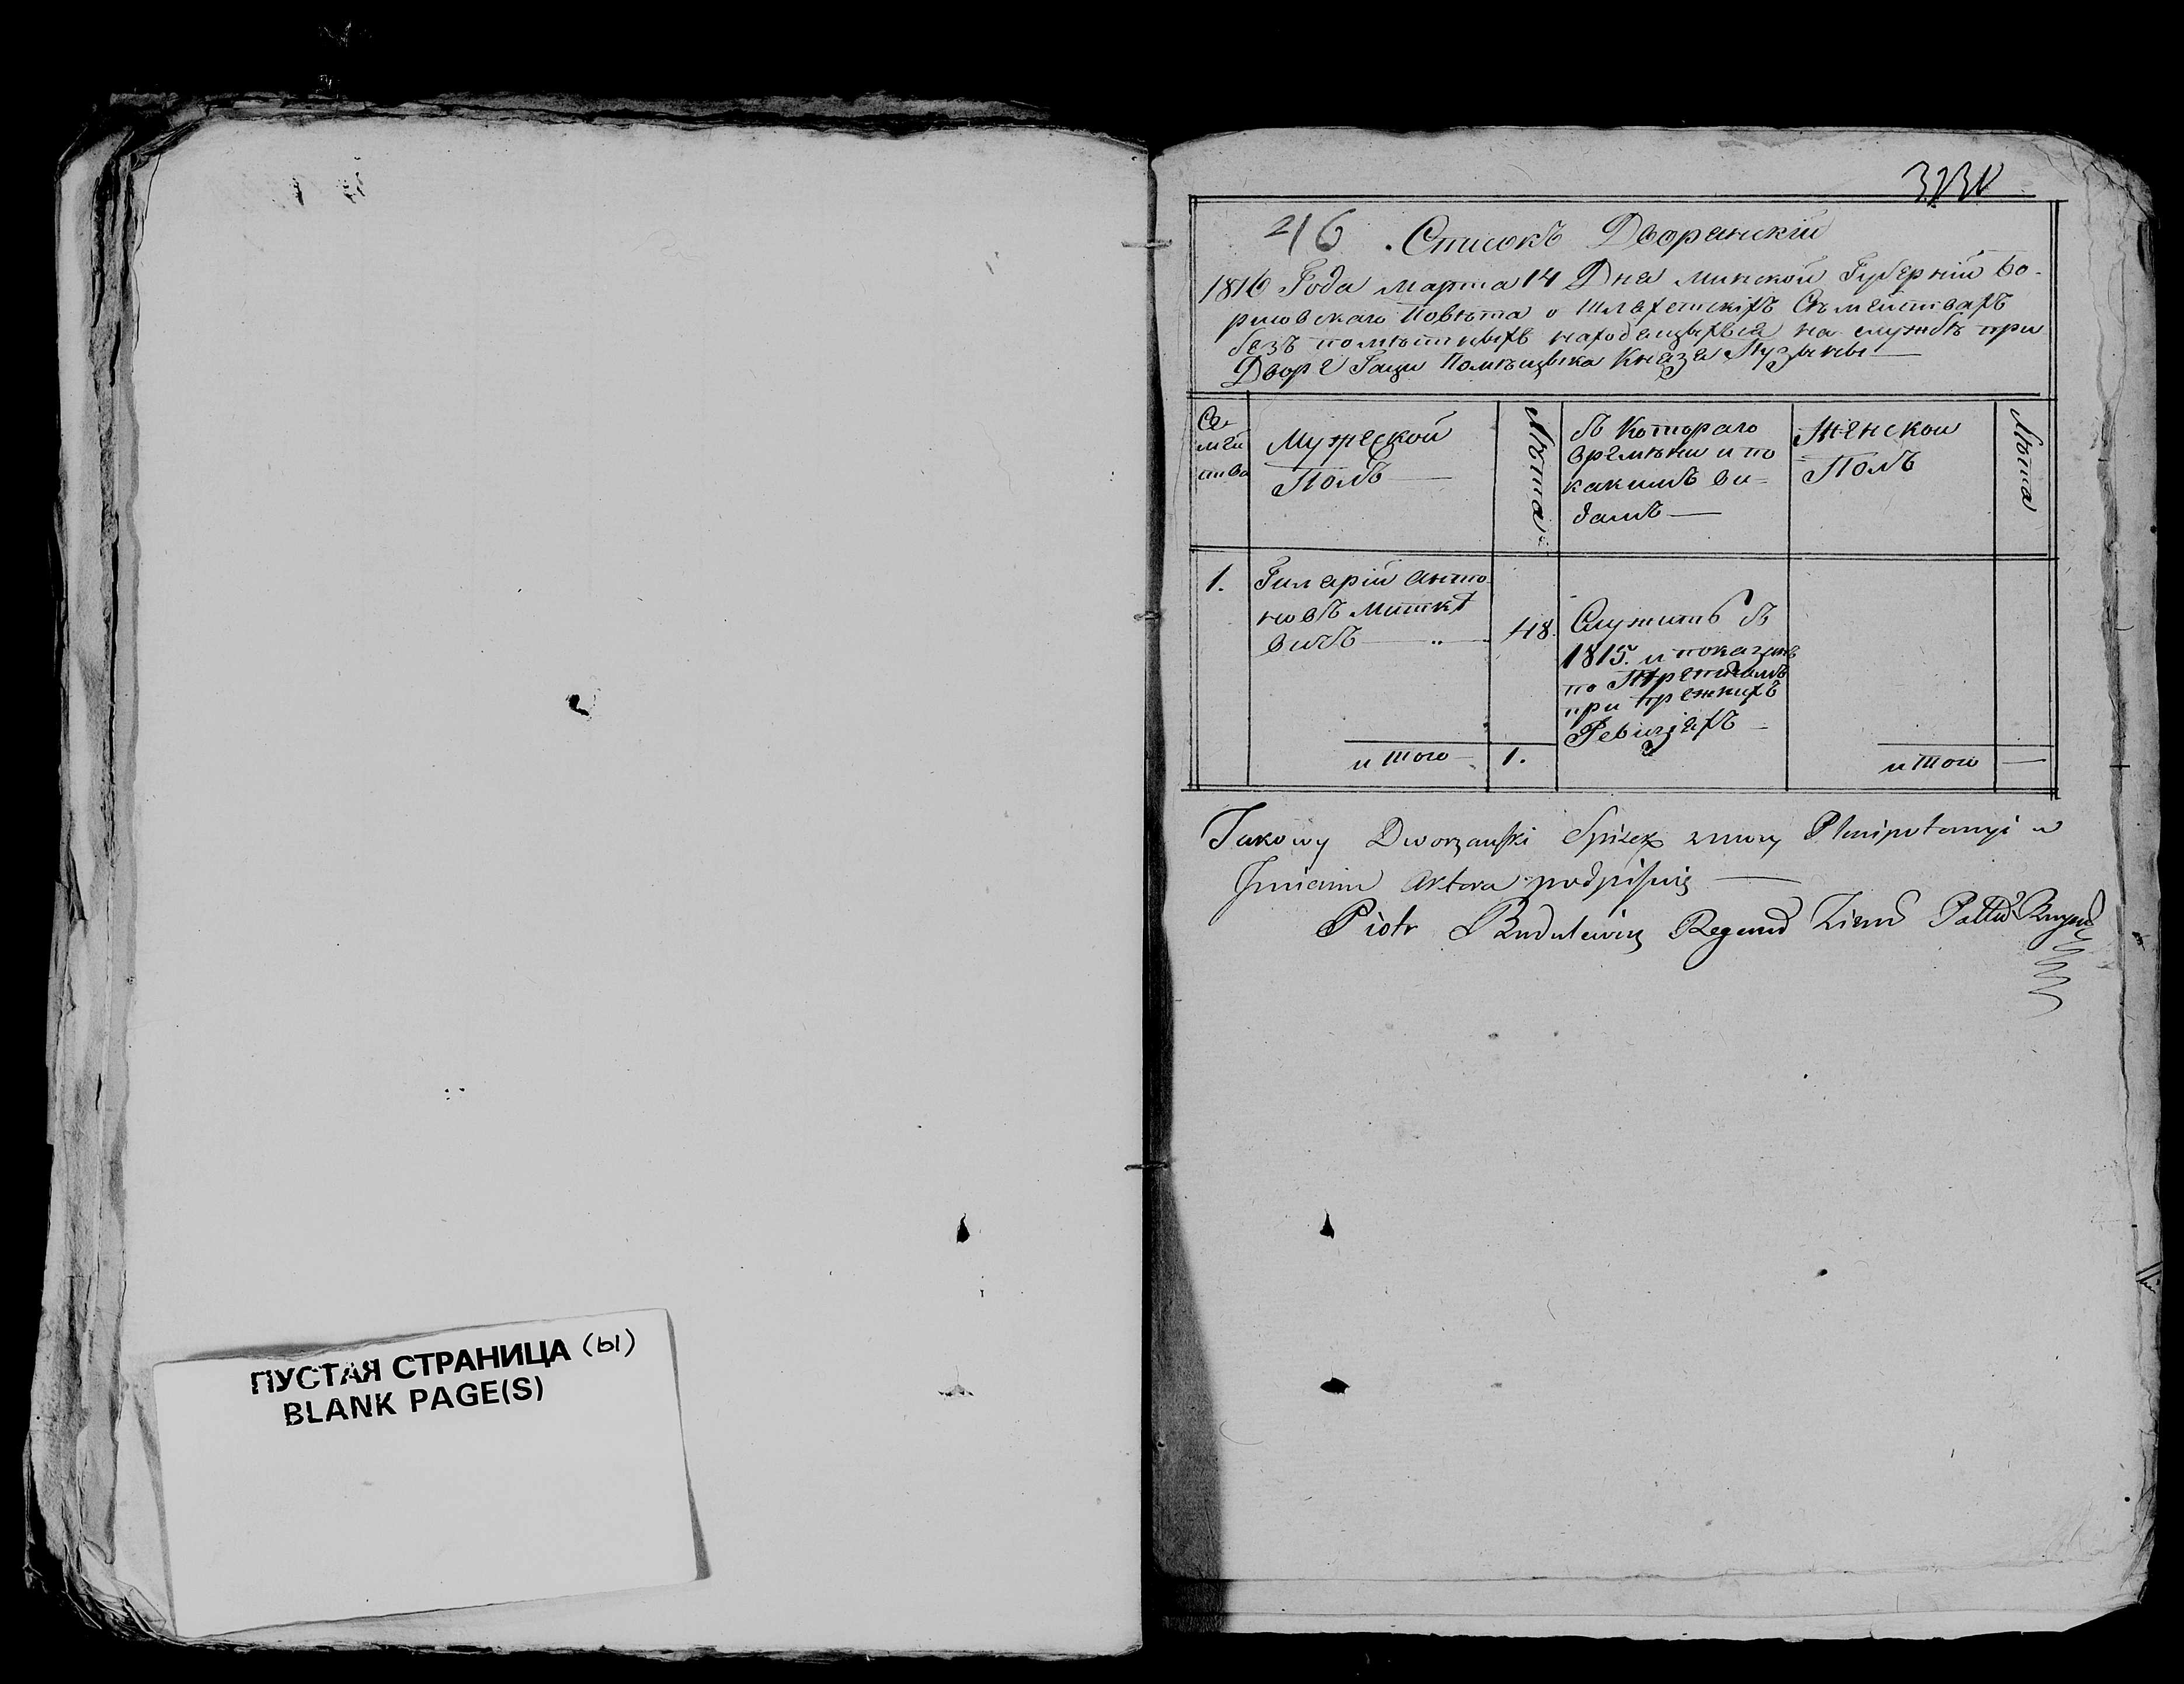 ПУСТАЯ СТРАНИЦА (ы)
BLANK PAGE(S)
216 . Списокъ Дворанскій
1816 Года марта 14 Дна минской Губерніи Бо-
рисовскаго Повѣта о Шлахетскіхъ Сѣмействахъ
безъ помѣстныхъ находащыхъся на службѣ при
Дворѣ Гащи Помѣщыка Кназа Пузыны
Се-
мей
ства
Мужеской
Полъ
Лѣта
Съ Котораго
времѣни и по
какимъ ви=
дамъ
Женскои
Полъ
Лѣта
1.
Гиларій Анто-
новъ Митке
вичъ
48.
Служитъ съ
1815. и показанъ
по
при прежнихъ
Ревизіяхъ
и того
1.
и того
Takowy Dworzanski Spisek z mocy Plenipotencyi w
Jmieniu Aktora podpisuię
Piotr Regend Ziem Pottu